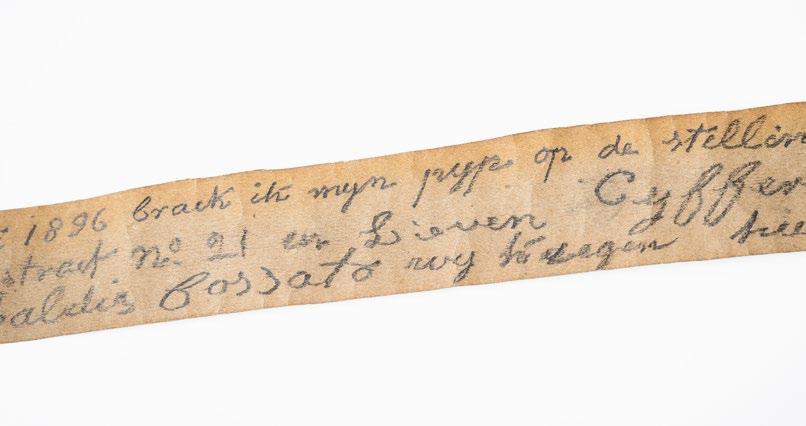 1896 brack ik myn pyp op de stellin
straet no 21 en Lieven Cyffer
baldie Cossato wy kreegen